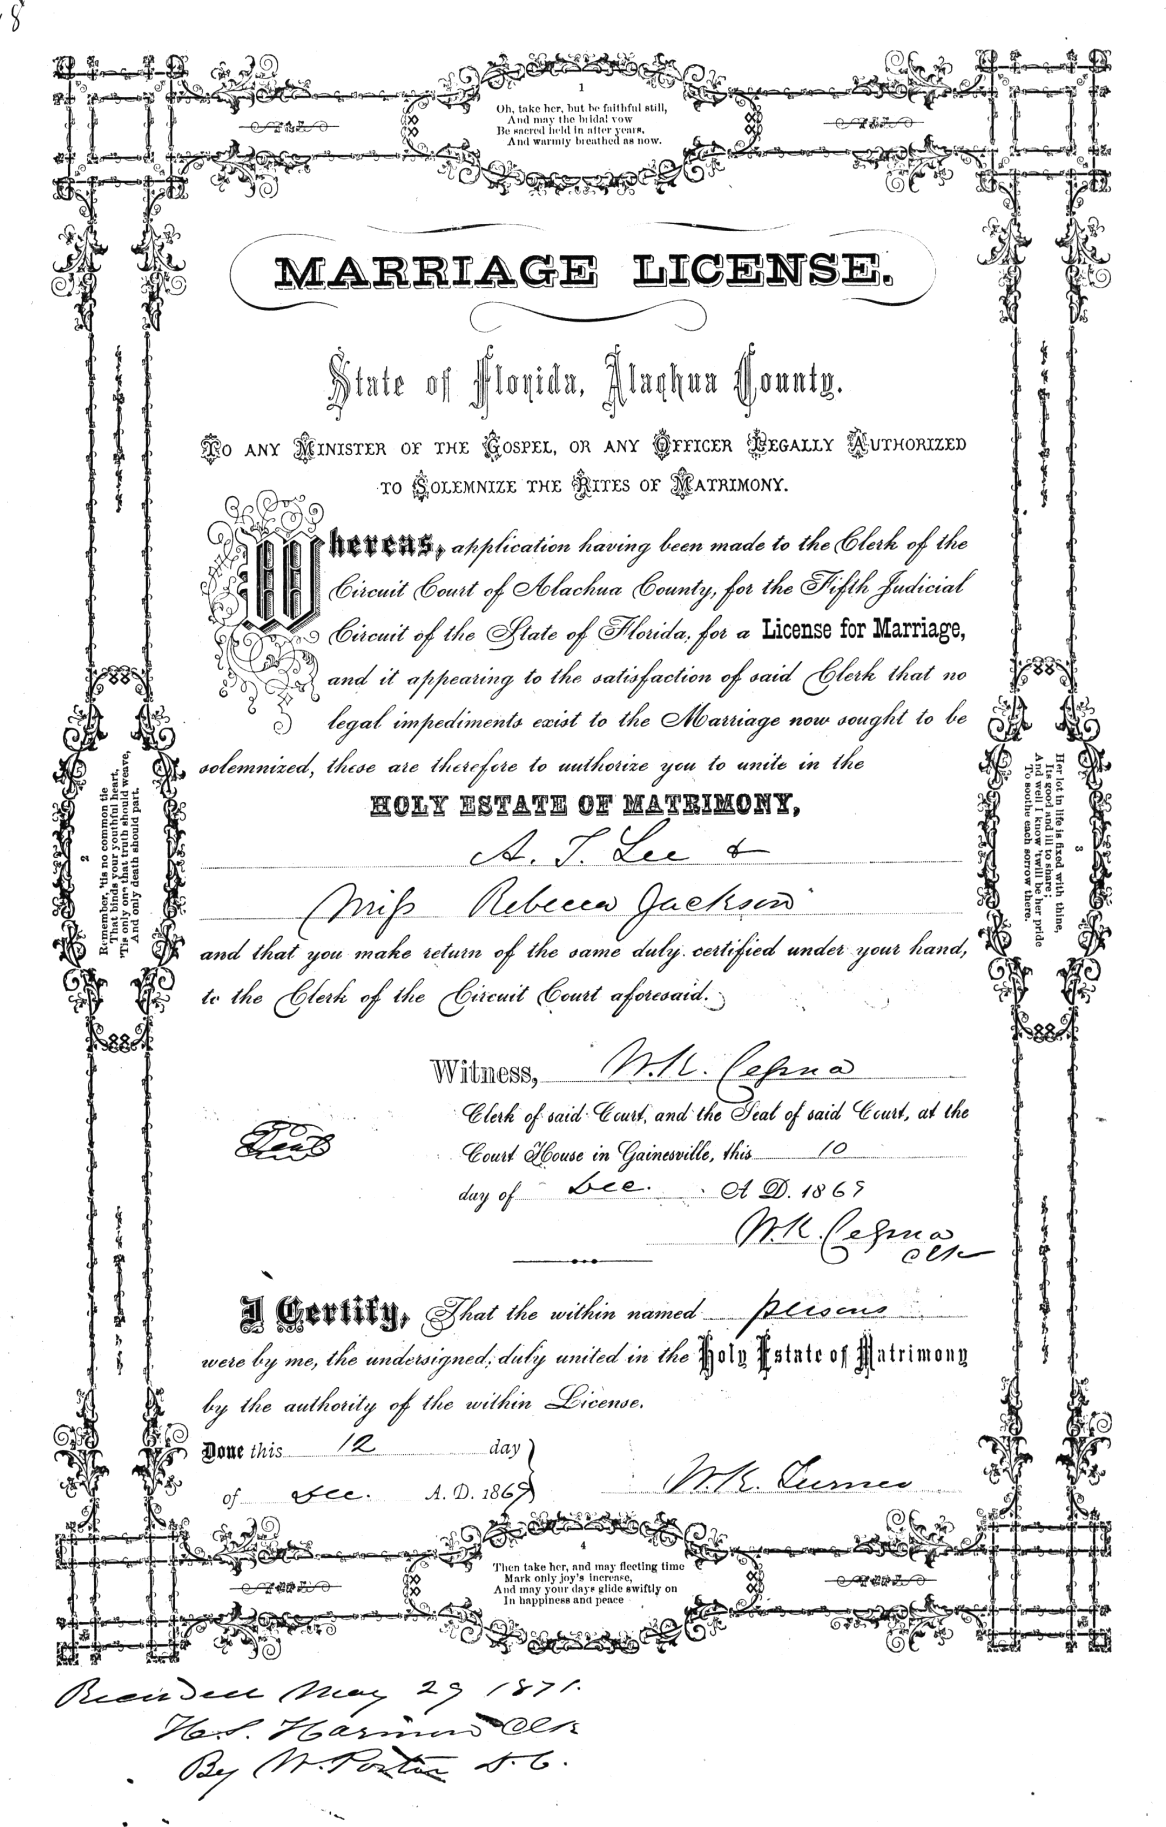 8
1
Oh, take her, but be faithful still,
And may the bridal vow
Be sacred held in after years,
And warmly breathed as now.
MARRIAGE LICENSE.
State of Florida, Alachua County.
TO ANY MINISTER OF THE GOSPEL, OR ANY OFFICER LEGALLY AUTHORIZED
TO SOLEMNIZE THE RITES OF MATRIMONY.
Whereas, application having been made to the Clerk of the
Circuit Court of Alachua County, for the Fifth Judicial
Circuit of the State of Florida, for a License for Marriage,
and it appearing to the satisfaction of said Clerk that no
legal impediments exist to the Marriage now sought to be
solemnized, these are therefore to authorize you to unite in the
HOLY ESTATE OF MATRIMONY,
A. T. Lee &
Miss Rebecca Jackson
and that you make return of the same duly certified under your hand,
to the Clerk of the Circuit Court aforesaid.
2
Remember, 'tis no common tie
That binds your youthful heart,
'Tis only one that truth should weave,
And only death should part.
3
Her lot in life is fixed with thine,
Its good and ill to share;
And well I know 'twill be her pride
To soothe each sorrow there.
Witness, W. K. Cessna
Clerk of said Court, and the Seal of said Court, at the
Seal
Court House in Gainesville, this 10
day of Dec. A. D. 1869
W. K. Cessna
Clk
I Certify, That the within named persons
were by me, the undersigned, duly united in the Holy Estate of Matrimony
by the authority of the within License.
Done this 12 day
of Dec. A. D. 1869
W. K. Turner
4
Then take her, and may fleeting time
Mark only joy's increase,
And may your days glide swiftly on
In happiness and peace
Recorded May 29 1871.
H. S. Harmon Clk
By W. Porter D. C.